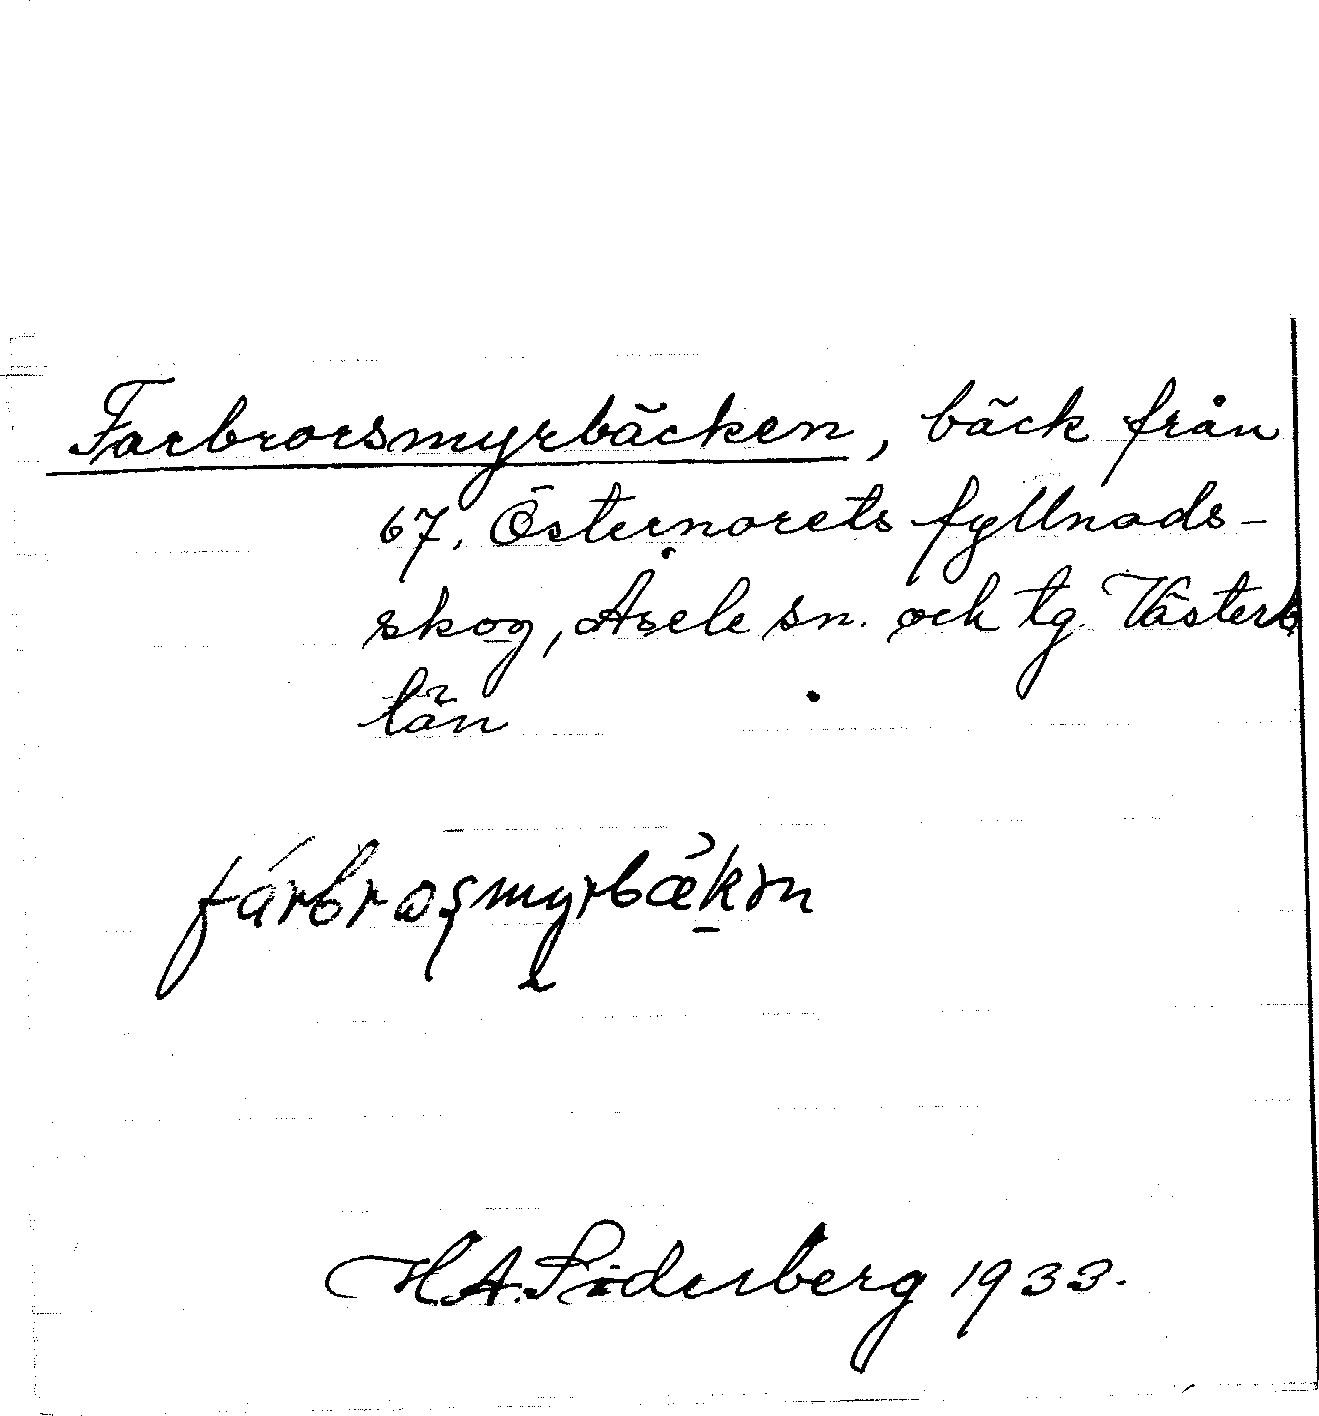 Farbrorsmyrbäcken, bäck från
67. Östernorets fyllnads-
skog, Åsele sn. och tg Västerb
län
H.A. Söderberg 1933.